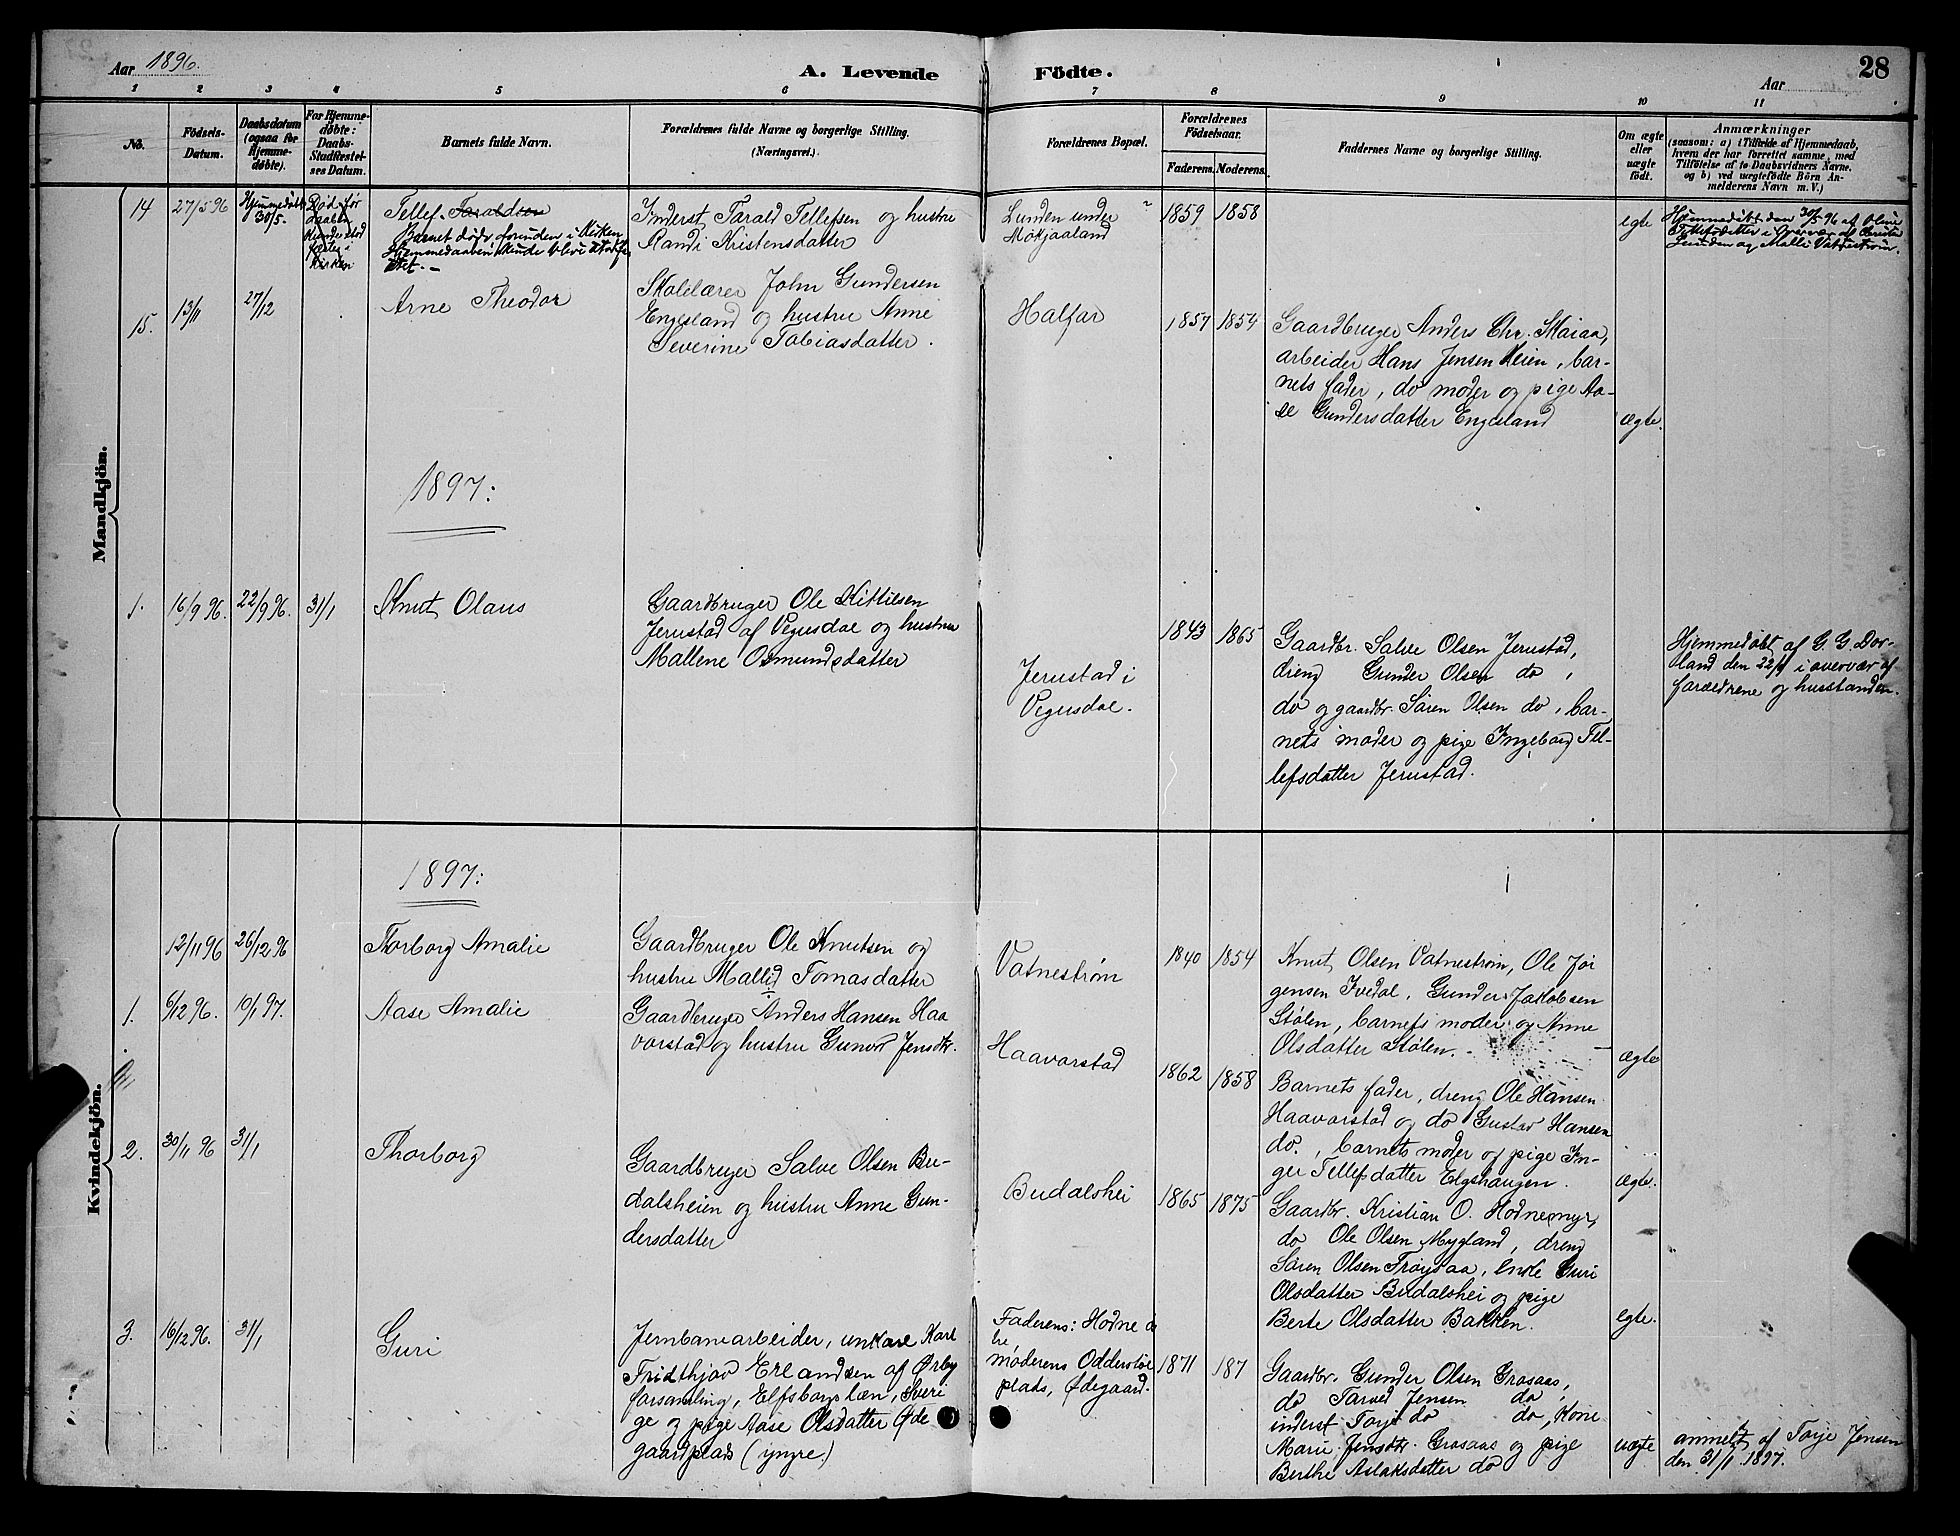 Aar 1896.
A. Levende Födte.
Aar
28
1 2 3 4 5 6 7 8 9 10 11
No.
Födsels-
Datum.
Daabsdatum
(ogsaa for
Hjemme-
døbte).
For Hjemme-
døbte:
Daabs-
Stadfæstel-
ses Datum.
Barnets fulde Navn.
Forældrenes fulde Navne og borgerlige Stilling.
(Næringsvei.)
Forældrenes Bopæl.
Forældrenes
Födselsaar.
Faderens. Moderens.
Faddernes Navne og borgerlige Stilling.
Om ægte
eller
uægte
født.
Anmærkninger
(saasom: a) i Tilfælde af Hjemmedaab,
hvem der har forrettet samme, med
Tilföielse af to Daabsvidners Navne,
og b) ved uægtefödte Börn An-
melderens Navn m. V.)
Mandkjön.
14 27/5 96 Hjemmedøbt
30/5.
Død før
daaben
kunde stad
fæstes i
kirken
Tellef Taraldsen
Barnet døde forinden i Kirken
Hjemmedaaben kunde blive stadfæ
stet. –
Inderst Tarald Tellefsen og hustru
Randi Kristensdatter
Lunden under
Mokjaaland
1859 1858
egte
Hjemmedøbt den 30/5 96 af Oline
Tellefsdatter i overvær af
Lunden og Malli Vatnestrøm.
15. 13/11 27/12
Arne Theodor
Skolelærer John Gundersen
Engesland og hustru Anne
Severine Tobiasdatter.
Halfar
1857 1854
Gaardbruger Anders Chr. Skaiaa,
arbeider Hans Jensen Heien, bar-
nets fader, do moder og pige Aa-
se Gundersdatter Engesland
ægte.
1897:
1. 16/9 96. 22/9 96. 31/1
Knut Olaus
Gaardbruger Ole Kittilsen
Jerustad af Vegusdal og hustru
Mallene Osmundsdatter
Jerustad i
Vegusdal.
1843 1865
Gaardbr. Salve Olsen Jerustad,
dreng Gunder Olsen do,
do og gaardbr. Søren Olsen do, bar-
nets moder og pige Ingeborg Tel-
lefsdatter Jerustad.
Hjemmedøbt af G. G. Dor-
land den 22/9 i overvær af
forældrene og husstanden.
Kvindekjön.
1897:
12/11 96 26/12 96
Thorborg Amalie
Gaardbruger Ole Knutsen og
hustru Mallid Tomasdatter
Vatnestrøm
1840 1854
Knut Olsen Vatnestrøm, Ole Jør
gensen Ivedal, Gunder Jakobsen
Stølen, barnets moder og Anne
Olsdatter Stølen. –
ægte
1. 6/12 96. 10/1 97.
Aase Amalie
Gaardbruger Anders Hansen Haa
vorstad og hustru Gunvor Jensdtr.
Haavorstad
1862 1858
Barnets fader, dreng Ole Hansen
Haavorstad og do Gustav Hansen
do., barnets moder og pige In-
ger Tellefsdatter Elgshaugen.
ægte.
2. 30/11 96 31/1
Thorborg
Gaardbruger Salve Olsen Bu-
dalsheien og hustru Anne Gun-
dersdatter
Budalshei
1865 1875
Gaardbr. Kristian O. Hodnemyr,
do Ole Olsen Mygland, dreng
Søren Olsen Frøysaa, enke Guri
Olsdatter Budalshei og pige
Berte Olsdatter Bakken.
egte.
3. 16/12 96. 31/1
Guri
Jernbanearbeider, unkarl Karl
Fridthjov Erlandsen af Ørby
forsamling, Elfsborgs læn, Sveri
ge og pige Aase Olsdatter Øde
gaardplads (yngre.)
Faderens: Hodne
moderens Odderstøl
plads, Ødegaard.
1871 187
Gaardbr. Gunder Olsen Grosaas,
do Tarjed Jensen do,
inderst Torje do do, Kone
Marie Jensdtr. Grosaas og pige
Berthe Aslaksdatter do
uægte
anmeldt af Torje Jensen
den 31/1 1897.